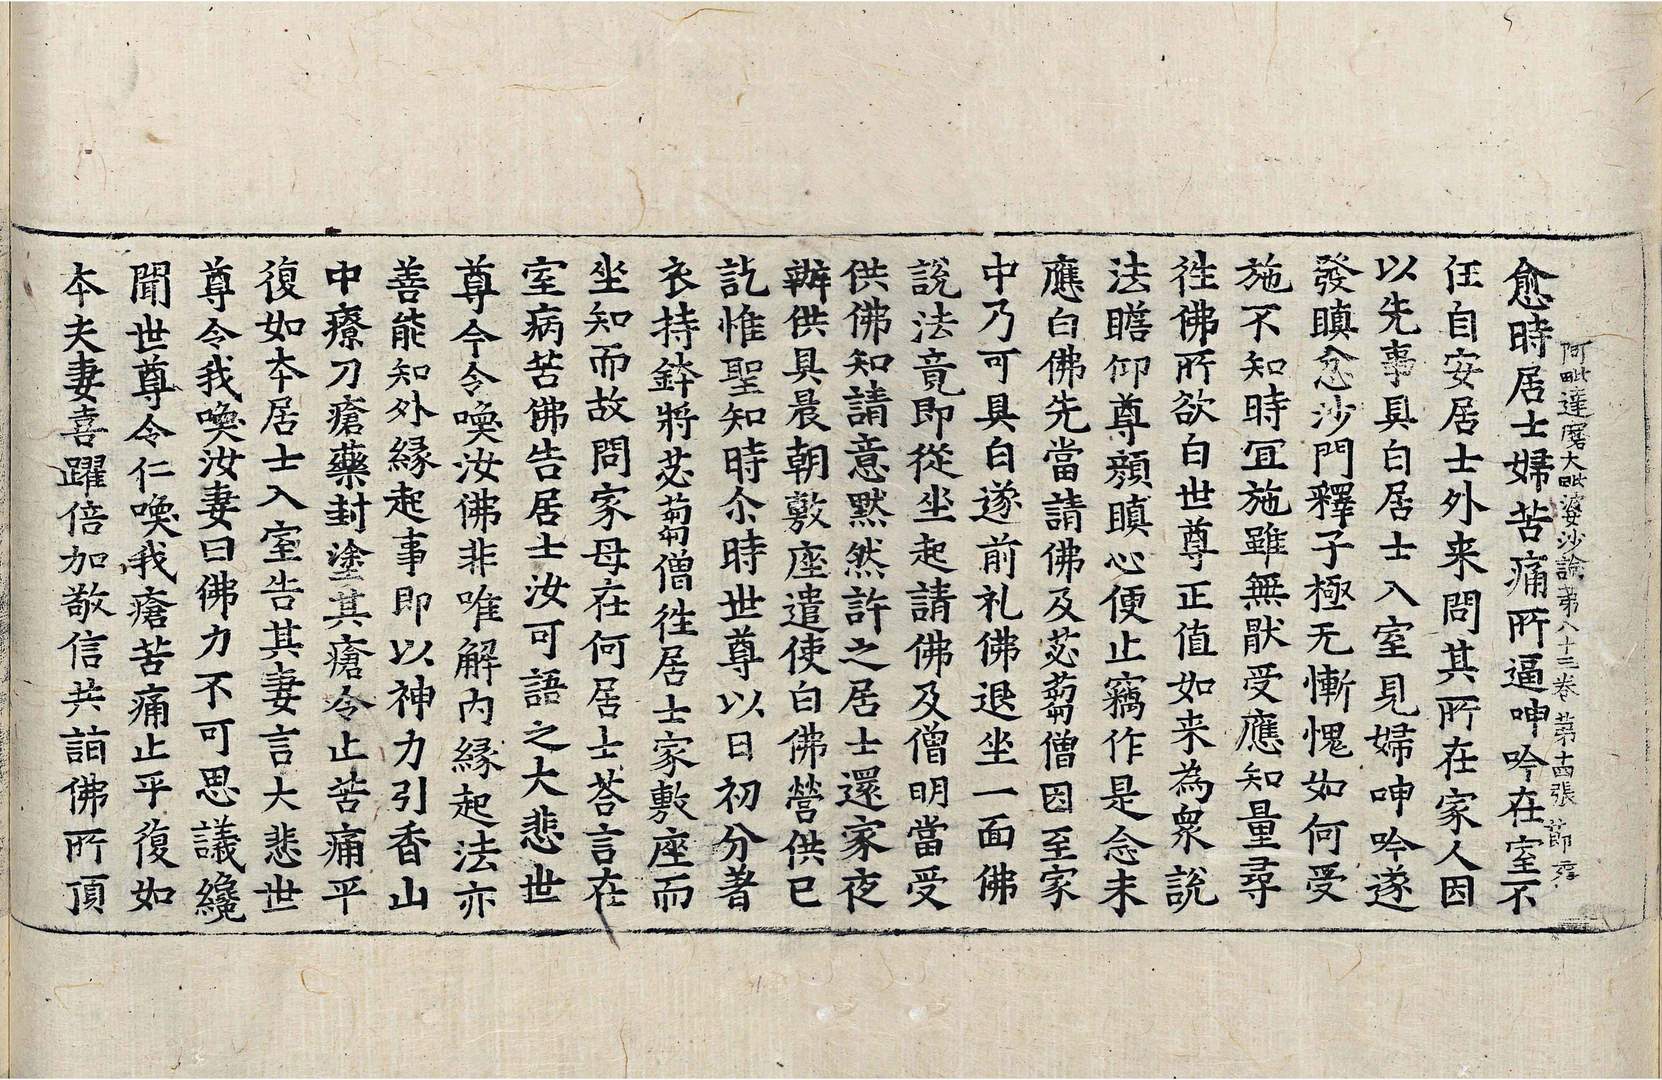 阿毗達磨大毗婆沙論第八十三卷 第十四張 節
愈時居士婦苦痛所逼呻吟在室不
任自安居士外来問其所在家人因
以先事具白居士入室見婦呻吟遂
發瞋忿沙門釋子極无慚愧如何受
施不知時冝施雖無猒受應知量尋
徃佛所欲白世尊正值如来為衆說
法瞻仰尊顏瞋心便止竊作是念未
應白佛先當請佛及苾蒭僧因至家
中乃可具白遂前礼佛退坐一面佛
說法竟即從坐起請佛及僧明當受
供佛知請意默然許之居士還家夜
辦供具晨朝敷座遣使白佛營供已
訖惟聖知時尒時世尊以日初分著
衣持鉢將苾蒭僧徃居士家敷座而
坐知而故問家母在何居士荅言在
室病苦佛告居士汝可語之大悲世
尊今令喚汝佛非唯解内緣起法亦
善能知外緣起事即以神力引香山
中療刀瘡藥封塗其瘡令止苦痛平
復如本居士入室告其妻言大悲世
尊令我喚汝妻曰佛力不可思議纔
聞世尊令仁喚我瘡苦痛止平復如
本夫妻喜躍倍加敬信共詣佛所頂